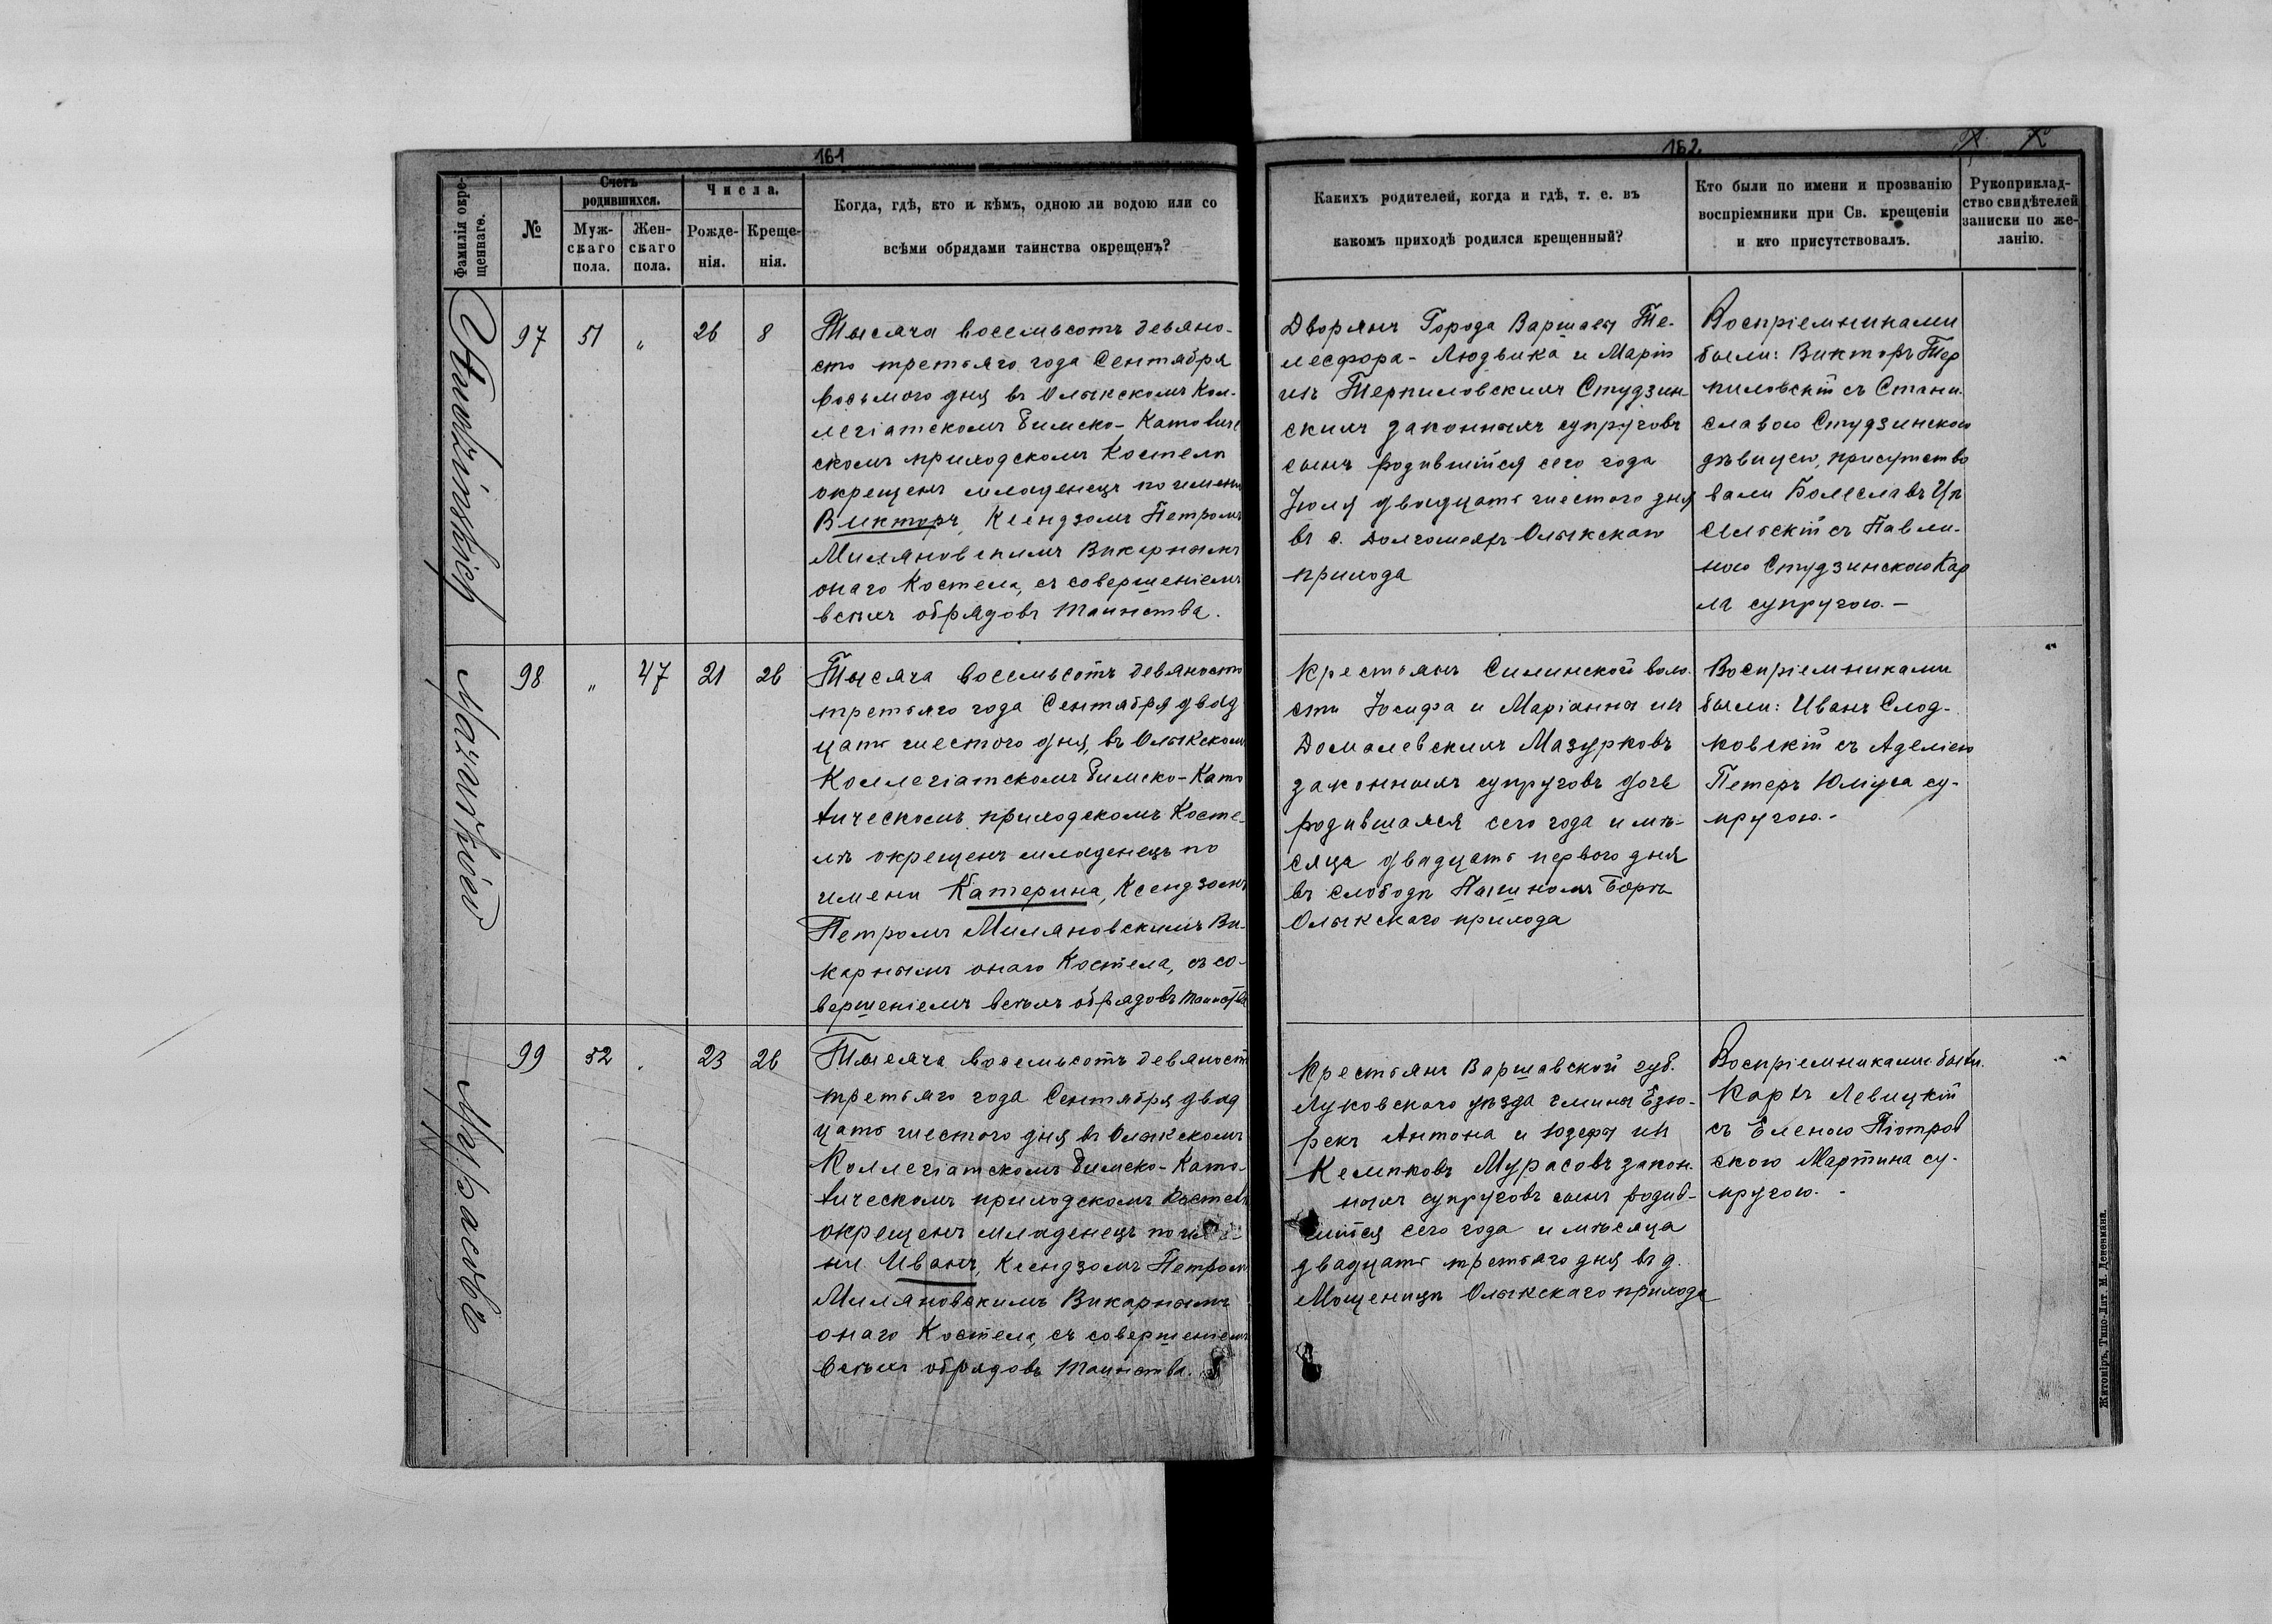 161
Фамилія окре-
щеннаго.
№
Счетъ
родившихся.
Муж-
скаго
пола.
Жен-
скаго
пола.
Числа.
Рожде-
нія.
Креще-
нія.
Когда, гдѣ, кто и кѣмъ, одною ли водою или со
всѣми обрядами таинства окрещенъ?
Studzińskich
97
51
"
26
8
Тысяча восемьсотъ девяно-
сто третьяго года Сентября
восьмого дня въ Олыкскомъ Кол-
легіатскомъ Римско-Католиче
скомъ приходскомъ Костелѣ
окрещенъ младенецъ по имени
Викторъ, Ксендзомъ Петромъ
Миляновскимъ Викарнымъ
онаго Костела, съ совершеніемъ
всѣхъ обрядовъ Таинства.
Mazurków
98
"
47
21
26
Тысяча восемьсотъ девяносто
третьяго года Сентября двад
цать шестого дня, въ Олыкскомъ
Коллегіатскомъ Римско-Като
лическомъ приходскомъ Косте-
лѣ окрещенъ младенецъ по
имени Катерина, Ксендзомъ
Петромъ Миляновскимъ Ви-
карнымъ онаго Костела, съ со-
вершеніемъ всѣхъ обрядовъ Таинства
Murasów
99
52
"
23
26
Тысяча восемьсотъ девяност
третьяго года Сентября двад
цать шестого дня въ Олыкскомъ
Коллегіатскомъ Римско-Като-
лическомъ приходскомъ Костелѣ
окрещенъ младенецъ по име
ни Иванъ, Ксендзомъ Петромъ
Миляновскимъ Викарнымъ
онаго Костела, съ совершеніемъ
всѣхъ обрядовъ Таинства.
162.
Какихъ родителей, когда и гдѣ, т. е. въ
какомъ приходѣ родился крещенный?
Кто были по имени и прозванію
воспріемники при Св. крещеніи
и кто присутствовалъ.
Рукоприклад-
ство свидѣтелей
записки по же-
ланію.
Дворянъ Города Варшавы Те-
лесфора-Людвика и Маріи
изъ Терпиловскихъ Студзин-
скихъ законныхъ супруговъ
сынъ родившійся сего года
Іюля двадцать шестого дня
въ с. Долгошеяхъ Олыкскаго
прихода
Воспріемниками
были: Викторъ Тер
пиловскій съ Стани-
славою Студзинскою
дѣвицею, присутство
вали Болеславъ Цѣ
сельскій съ Павли-
ною Студзинскою Кар
ла супругою.-
Крестьянъ Силинской воло-
сти Іосифа и Маріанны изъ
Домалевскихъ Мазурковъ
законныхъ супруговъ дочь
родившаяся сего года и мѣ-
сяца двадцать первого дня
въ слободѣ Пышномъ Борѣ
Олыкскаго прихода
Воспріемниками
были: Иванъ Слод-
ковскій съ Аделіею
Петеръ Юліуса су-
пругою.-
Крестьянъ Варшавской губ.
Луковского уѣзда гмины Езю-
рекъ Антона и Юзефы изъ
Кемпковъ Мурасовъ закон-
ныхъ супруговъ сынъ родив-
шійся сего года и мѣсяца
двадцать третьяго дня въ д.
Мощеницѣ Олыкскаго прихода
Воспріемниками были.
Карлъ Левицкій
съ Еленою Піотров
скою Мартина су-
пругою.-
Житоміръ, Типо-Лит. М. Дененмана.